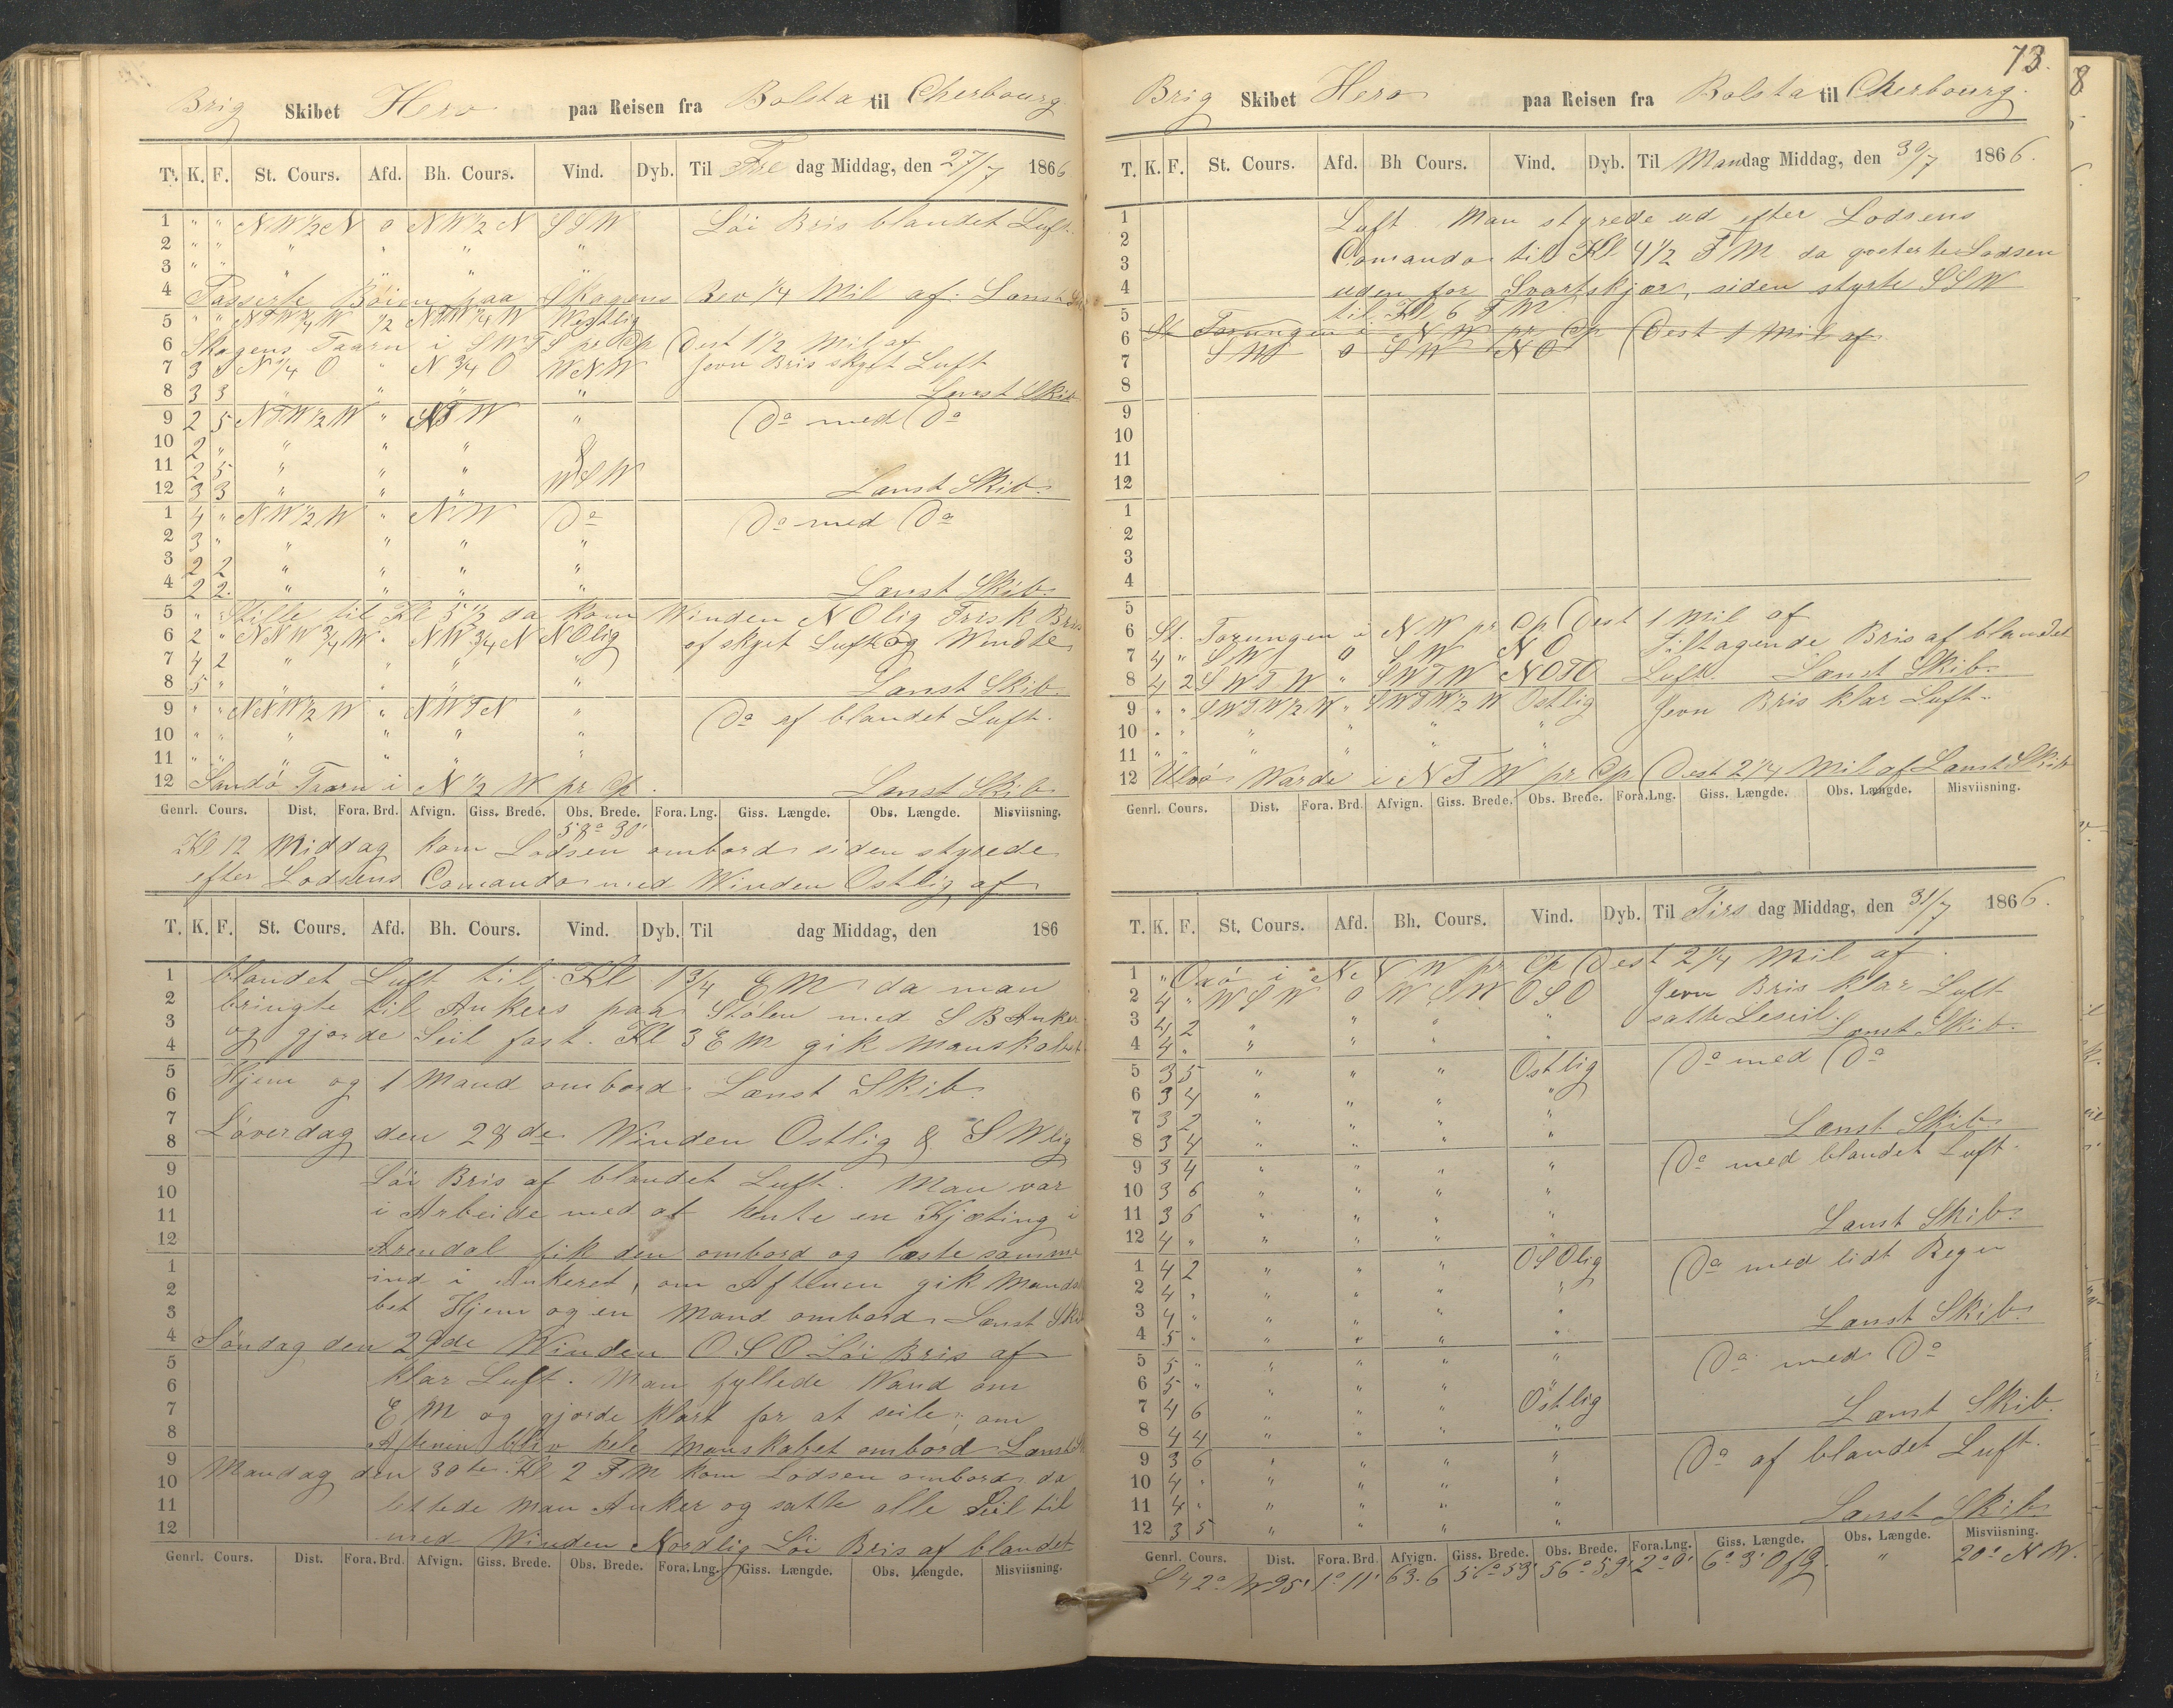 Brig Skibet Hero paa Reisen fra Bolsta til Cherbourg
T. K. F. St. Cours. Afd. Bh. Cours. Vind. Dyb. Til Fre dag Middag, den 27/7 1866
1 " " NW 1/2 N 0 NW 1/2 N SSW Löi Bris blandet Luft.
2 " " " " " "
3 " " " " " "
4 Passerte Böien paa Skagens Rev 1/4 Mil af. Lænst Skib
5 " " NTW 1/4 W 1/2 NTW 1/4 W Westlig
6 Skagens Taarn i SWTS pr Cp Dest 1 1/2 Mil af
7 3 " N 1/4 O " N 3/4 O WNW Jevn Bris skyet Luft
8 3 3 " " " " Lænst Skib
9 2 5 NTW 1/2 W " NTW " Do med Do
10 2 " " " " "
11 2 5 " " " &
12 3 3 " " " WSW Lænst Skib.
1 4 " NW 1/2 W " NW Do Do med Do
2 3 " " " " "
3 2 2 " " " "
4 2 2 " " " " Lænst Skib.
5 " Stille til Kl 5 1/2 da kom Winden NOlig Frisk Bris
6 2 " NNW 3/4 W " NW 3/4 N NOlig af skyet Luft og Windte
7 4 2 " " " "
8 5 " " " " " Lænst Skib
9 " " NNW 1/2 W " NWTN " Do af blandet Luft.
10 " " " " " "
11 " " " " "
12 Sandö Taarn i N 1/2 W pr Cp. Lænst Skib
Genrl. Cours. Dist. Fora. Brd. Afvign. Giss. Brede. Obs. Brede. Fora. Lng. Giss. Længde. Obs. Længde. Misviisning.
58° 30'
Kl 12 Middag kom Lodsen ombord siden styrede
efter Lodsens Comando med Winden Ostlig af
T. K. F. St. Cours. Afd. Bh. Cours. Vind. Dyb. Til dag Middag, den 186
1 blandet Luft til Kl 1 3/4 EM da man
2 bringte til Ankers paa Stölen med SB Anker
3 og gjorde Seil fast. Kl 3 EM gik Manskabet
4
5 Hjem og 1 Mand ombord Lænst Skib.
6
7 Löverdag den 28de Winden Ostlig & SWlig
8
9 Löi Bris af blandet Luft. Man var
10 i Arbeide med at hente en Kjæting i
11
12 Arendal fik den ombord og læste samme
1 ind i Ankeret, om Aftenen gik Manska
2 bet Hjem og en Mand ombord Lænst Skib
3
4 Söndag den 29de Winden OSO Löi Bris af
5 klar Luft. Man fyllede Wand om
6
7 EM og gjorde klart for at seile; om
8 Aftenen blev hele Manskabet ombord Lænst
9 Mandag den 30te Kl 2 FM kom Lodsen ombord da
10 lettede man Anker og satte alle Seil til
11
12 med Winden Nordlig Löi Bris af blandet
Genrl. Cours. Dist. Fora. Brd. Afvign. Giss. Brede. Obs. Brede. Fora. Lng. Giss. Længde. Obs. Længde. Misviisning.
73.
Brig Skibet Hero paa Reisen fra Bolsta til Cherbourg.
T. K. F. St. Cours. Afd. Bh Cours. Vind. Dyb. Til Mandag Middag, den 30/7 1866.
1 Luft. Man styrede ud efter Lodsens
2 Comando til Kl 4 1/2 FM da qveterte Lodsen
3
4 uden for Svartskjær, siden styrte SSW
5 til Kl 6 FM
6 St Torungen i NW pr Cp Dest 1 Mil af
7 SW 0 SW NO
8
9
10
11
12
1
2
3
4
5
6 St. Torungen i NW pr Cp Dest 1 Mil af
7 4 " SW 0 SW NO Tiltagende Bris af blandet
8 4 2 SWTW " SWTW NOTO Luft. Lænst Skib.
9 " " SWTW 1/2 W " SWTW 1/2 W Ostlig Jevn Bris klar Luft.
10 " " " " " "
11 " " " " "
12 Ulvö Warde i NTW pr Cp Dest 2 1/4 Mil af Lænst Skib
Genrl. Cours. Dist. Fora. Brd. Afvign. Giss. Brede. Obs. Brede. Fora. Lng. Giss. Længde. Obs. Længde. Misviisning.
T. K. F. St. Cours. Afd. Bh. Cours. Vind. Dyb. Til Tirs dag Middag, den 31/7 1866.
1 " Oxö i N pr Cp Dest 2 1/4 Mil af.
2 4 " WSW 0 WSW OSO Jevn Bris klar Luft
3 4 2 " " " " satte Leseil.
4 4 " " " " Lænst Skib.
5 3 5 " " " Ostlig Do med Do
6 3 4 " " " "
7 3 2 " " " "
8 3 4 " " " " Lænst Skib
9 3 4 " " " " Do med blandet Luft.
10 3 6 " " " "
11 3 6 " " " "
12 4 " " " " " Lænst Skib.
1 4 2 " " " OSOlig Do med lidt Regn
2 4 " " " " "
3 4 " " " " "
4 5 " " " " " Lænst Skib.
5 5 " " " " " Do med Do
6 5 " " " " "
7 4 6 " " " Ostlig
8 4 4 " " " " Lænst Skib.
9 3 6 " " " " Do af blandet Luft.
10 4 " " " " "
11 4 " " " " "
12 3 5 " " " " Lænst Skib
Genrl. Cours. Dist. Fora. Brd. Afvign. Giss. Brede. Obs. Brede. Fora. Lng. Giss. Længde. Obs. Længde. Misviisning.
S 42° W 95' 1° 11' 63.6 56° 59' 56° 59' 2° 0' 6° 3' O f G. " 20° NW.